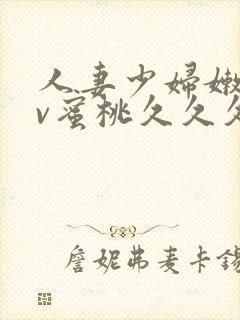 人妻少婦嫩
v蜜桃久久久
詹妮弗麦卡錫